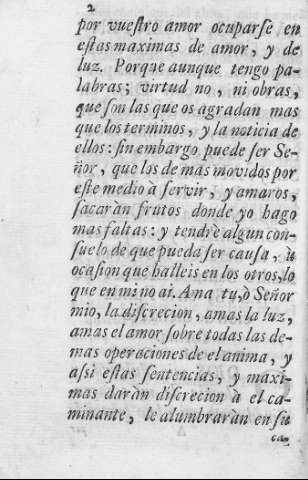 2
por vuestro amor ocuparse en
estas maximas de amor, y de
luz. Porque aunque tengo pa-
labras; virtud no, ni obras,
que son las que os agradan mas
que los terminos, y la noticia de
ellos: sin embargo puede ser Se-
ñor, que los de mas movidos por
este medio à servir, y amaros,
sacaràn frutos donde yo hago
mas faltas: y tendrè algun con-
suelo de que pueda ser causa, ù
ocasion que halleis en los otros, lo
que en mi no ai. Ama tu, ò Señor
mio, la discrecion, amas la luz,
amas el amor sobre todas las de-
mas operaciones de el anima, y
asi estas sentencias, y maxi-
mas daràn discrecion à el ca-
minante, le alumbraràn en su
ca-